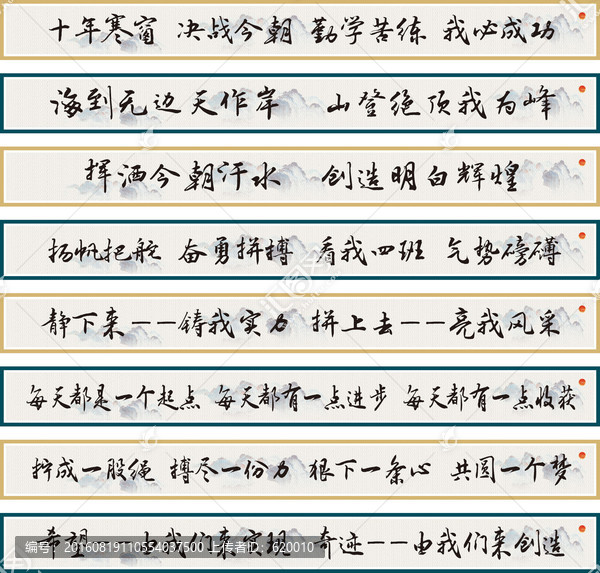 十年寒窗 决战今朝 勤学苦练 我必成功
海到无边天作岸 山登绝顶我为峰
挥洒今朝汗水 创造明日辉煌
扬帆把舵 奋勇拼搏 看我四班 气势磅礴
静下来——铸我实力 拼上去——亮我风采
每天都是一个起点 每天都有一点进步 每天都有一点收获
拧成一股绳 搏尽一份力 狠下一条心 共圆一个梦
希望——由我们来实现 奇迹——由我们来创造
编号：20160819110554037500 上传者ID：620010